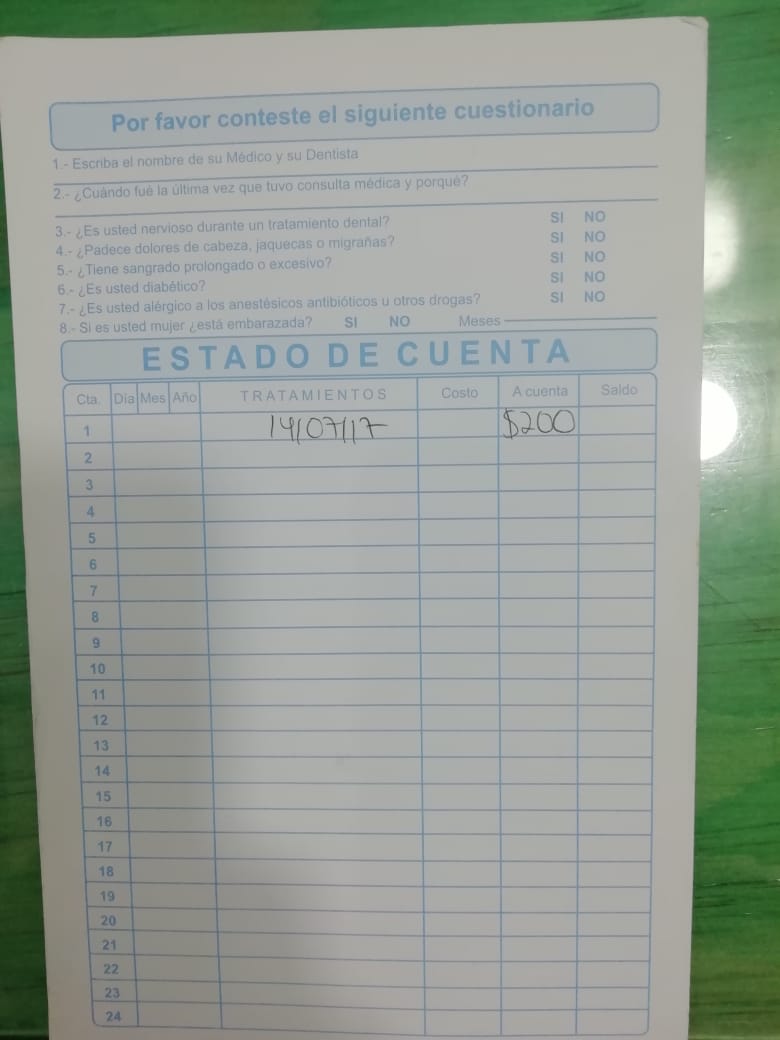 Por favor conteste el siguiente cuestionario
1.- Escriba el nombre de su Médico y su Dentista
2.- ¿Cuándo fué la última vez que tuvo consulta médica y porqué?
3.- ¿Es usted nervioso durante un tratamiento dental? SI NO
4.- ¿Padece dolores de cabeza, jaquecas o migrañas? SI NO
5.- ¿Tiene sangrado prolongado o excesivo? SI NO
6.- ¿Es usted diabético? SI NO
7.- ¿Es usted alérgico a los anestésicos antibióticos u otros drogas? SI NO
8.- Si es usted mujer ¿está embarazada? SI NO Meses
ESTADO DE CUENTA
Cta. Día Mes Año TRATAMIENTOS Costo A cuenta Saldo
1 14/07/17 $200
2
3
4
5
6
7
8
9
10
11
12
13
14
15
16
17
18
19
20
21
22
23
24